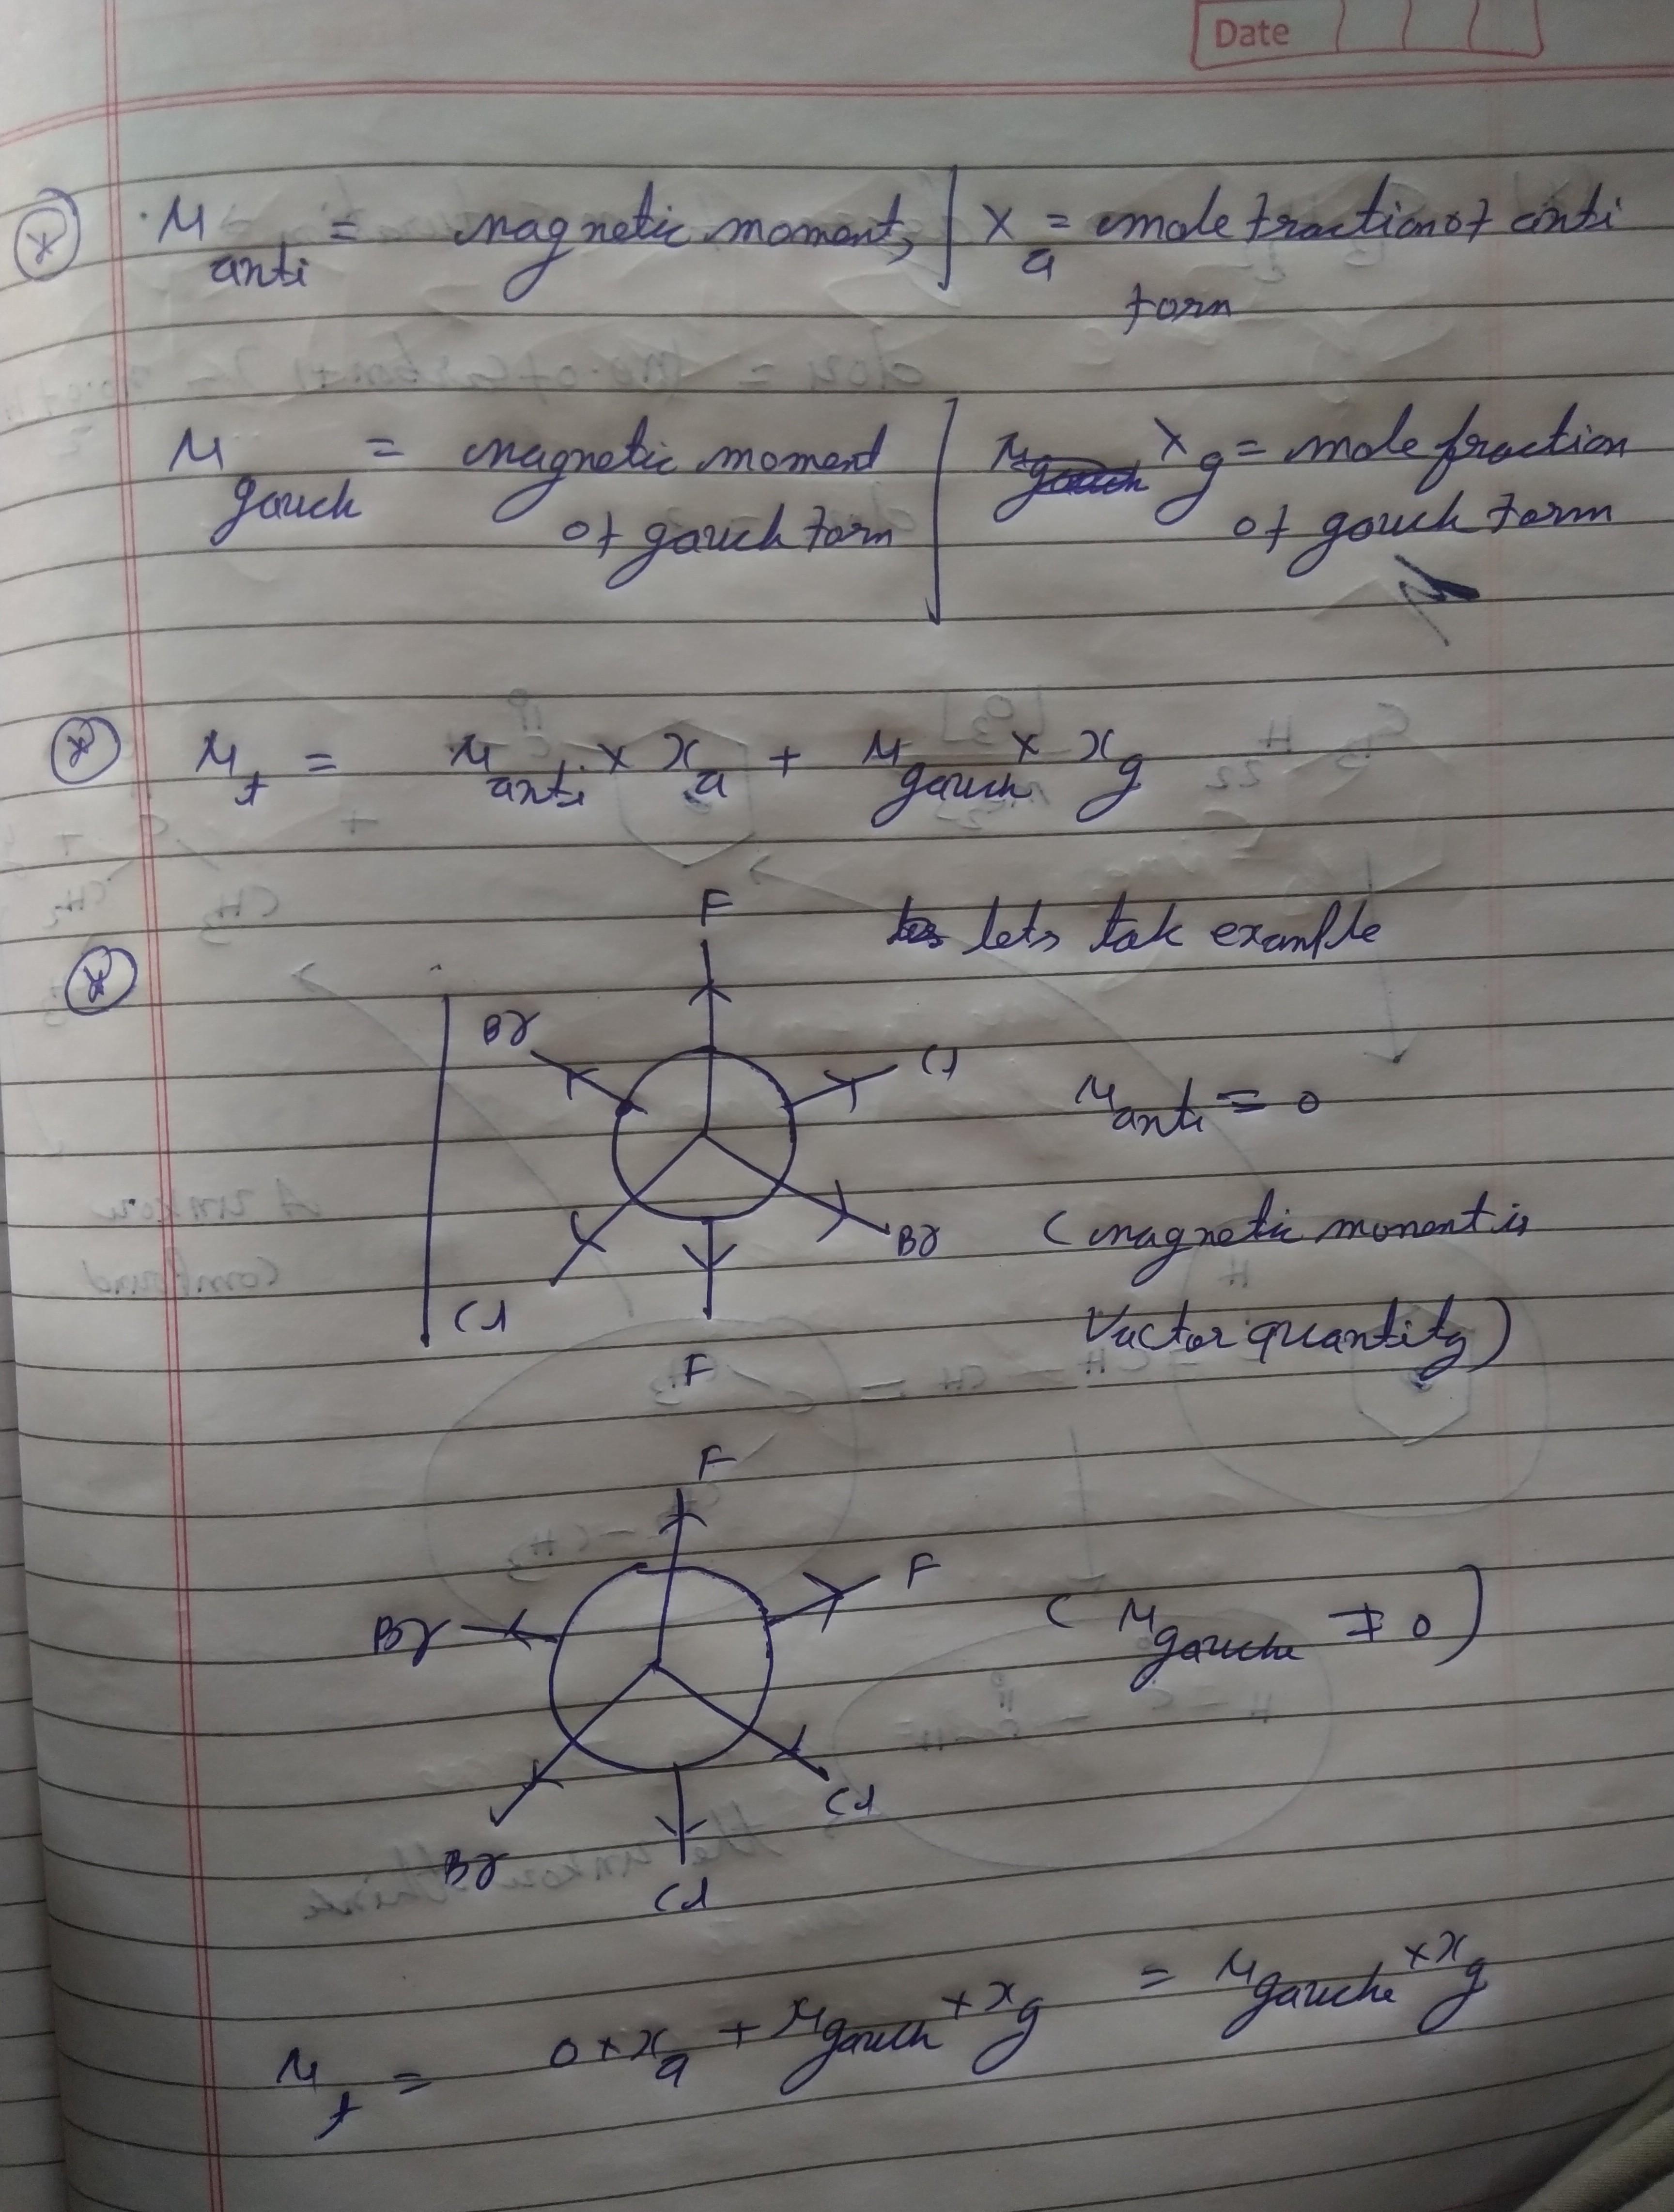 Date
μ anti = magnetic moment, | X a = mole fraction of anti
form
μ gauch = magnetic moment | X g = mole fraction
of gauch form | of gauch form
μ t = μ anti × x a + μ gauch × x g
lets tak example
F
Br Cl
μ anti = 0
Br
(magnetic moment is
Cl
Vector quantity)
F
F
F
Br
( μ gauche ≠ 0 )
Cl
Br
Cl
μ t = 0 × x a + μ gauch × x g = μ gauche × x g